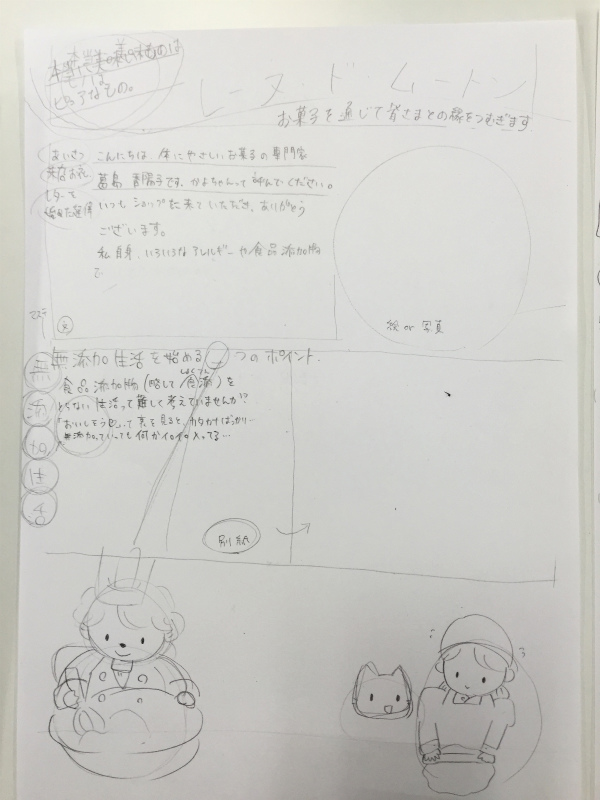 ピュアなもの。
レーヌ・ド・ムートン
お菓子を通じて皆さまとの縁をつむぎます
あいさつ
来店お礼
こんにちは、体にやさしいお菓子の専門家
です。かよちゃんって呼んでください。
いつもショップに来ていただき、ありがとう
ございます。
私自身、いろいろなアレルギーや食品添加物
で
マステ
絵or写真
無添加生活を始める 3つのポイント.
無添加生活
食品添加物(略して食添)を
しょくてん
とらない生活って難しく考えていませんか?
「おいしそう」って裏を見ると、カタカナばかり…
無添加っていっても何かイロイロ入ってる…
別紙